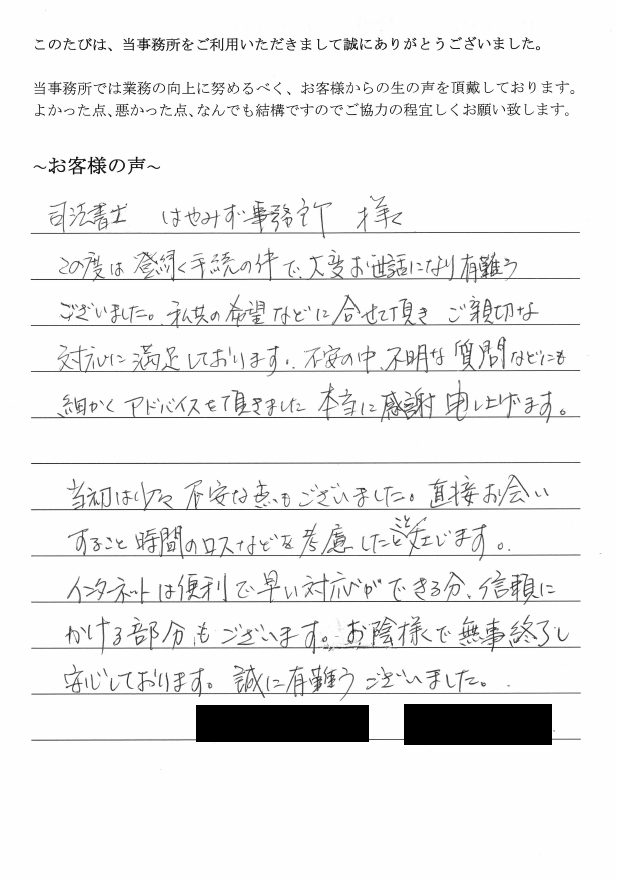 このたびは、当事務所をご利用いただきまして誠にありがとうございました。
当事務所では業務の向上に努めるべく、お客様からの生の声を頂戴しております。
よかった点、悪かった点、なんでも結構ですのでご協力の程宜しくお願い致します。
~お客様の声~
司法書士 はやみず事務所 様
この度は登録手続の件で、大変お世話になり有難う
ございました。私共の希望などに合せて頂き ご親切な
対応に満足しております。不安の中、不明な質問などにも
細かくアドバイスを頂きました 本当に感謝申し上げます。
当初は少々不安な点もございました。直接お会い
すること時間のロスなどを考慮したこと 存じます。
インターネットは便利で早い対応ができる分、信頼に
かける部分もございます。お陰様で無事終了し
安心しております。誠に有難うございました。